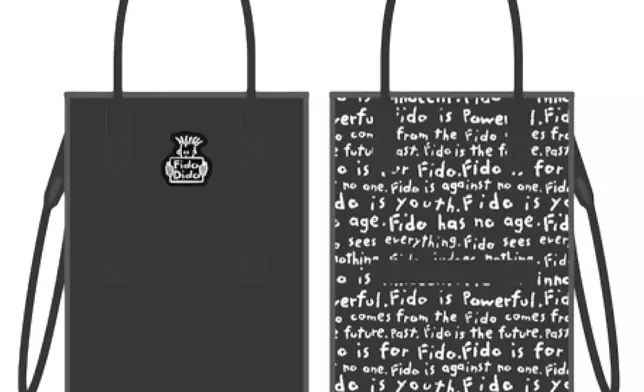 Fido
Dido
o is innocent. Fido inno
erful. Fido is Powerful. Fid
o com from the Fido comes fr
e future. Past. Fido is the future. Past
o is for Fido. Fido is for
no one. Fido is against no one. Fido
do is youth. Fido is yo
age. Fido has no age. Fid
o sees everything. Fido sees ever
nothing. Fido judges nothing. Fid
o is inno
verful. Fido is Powerful. Fid
o comes from the Fido comes fr
e future. Past. Fido is the future. Past
o is for Fido. Fido is for
no one. Fido is against no one. Fido
do is youth. Fido is yo